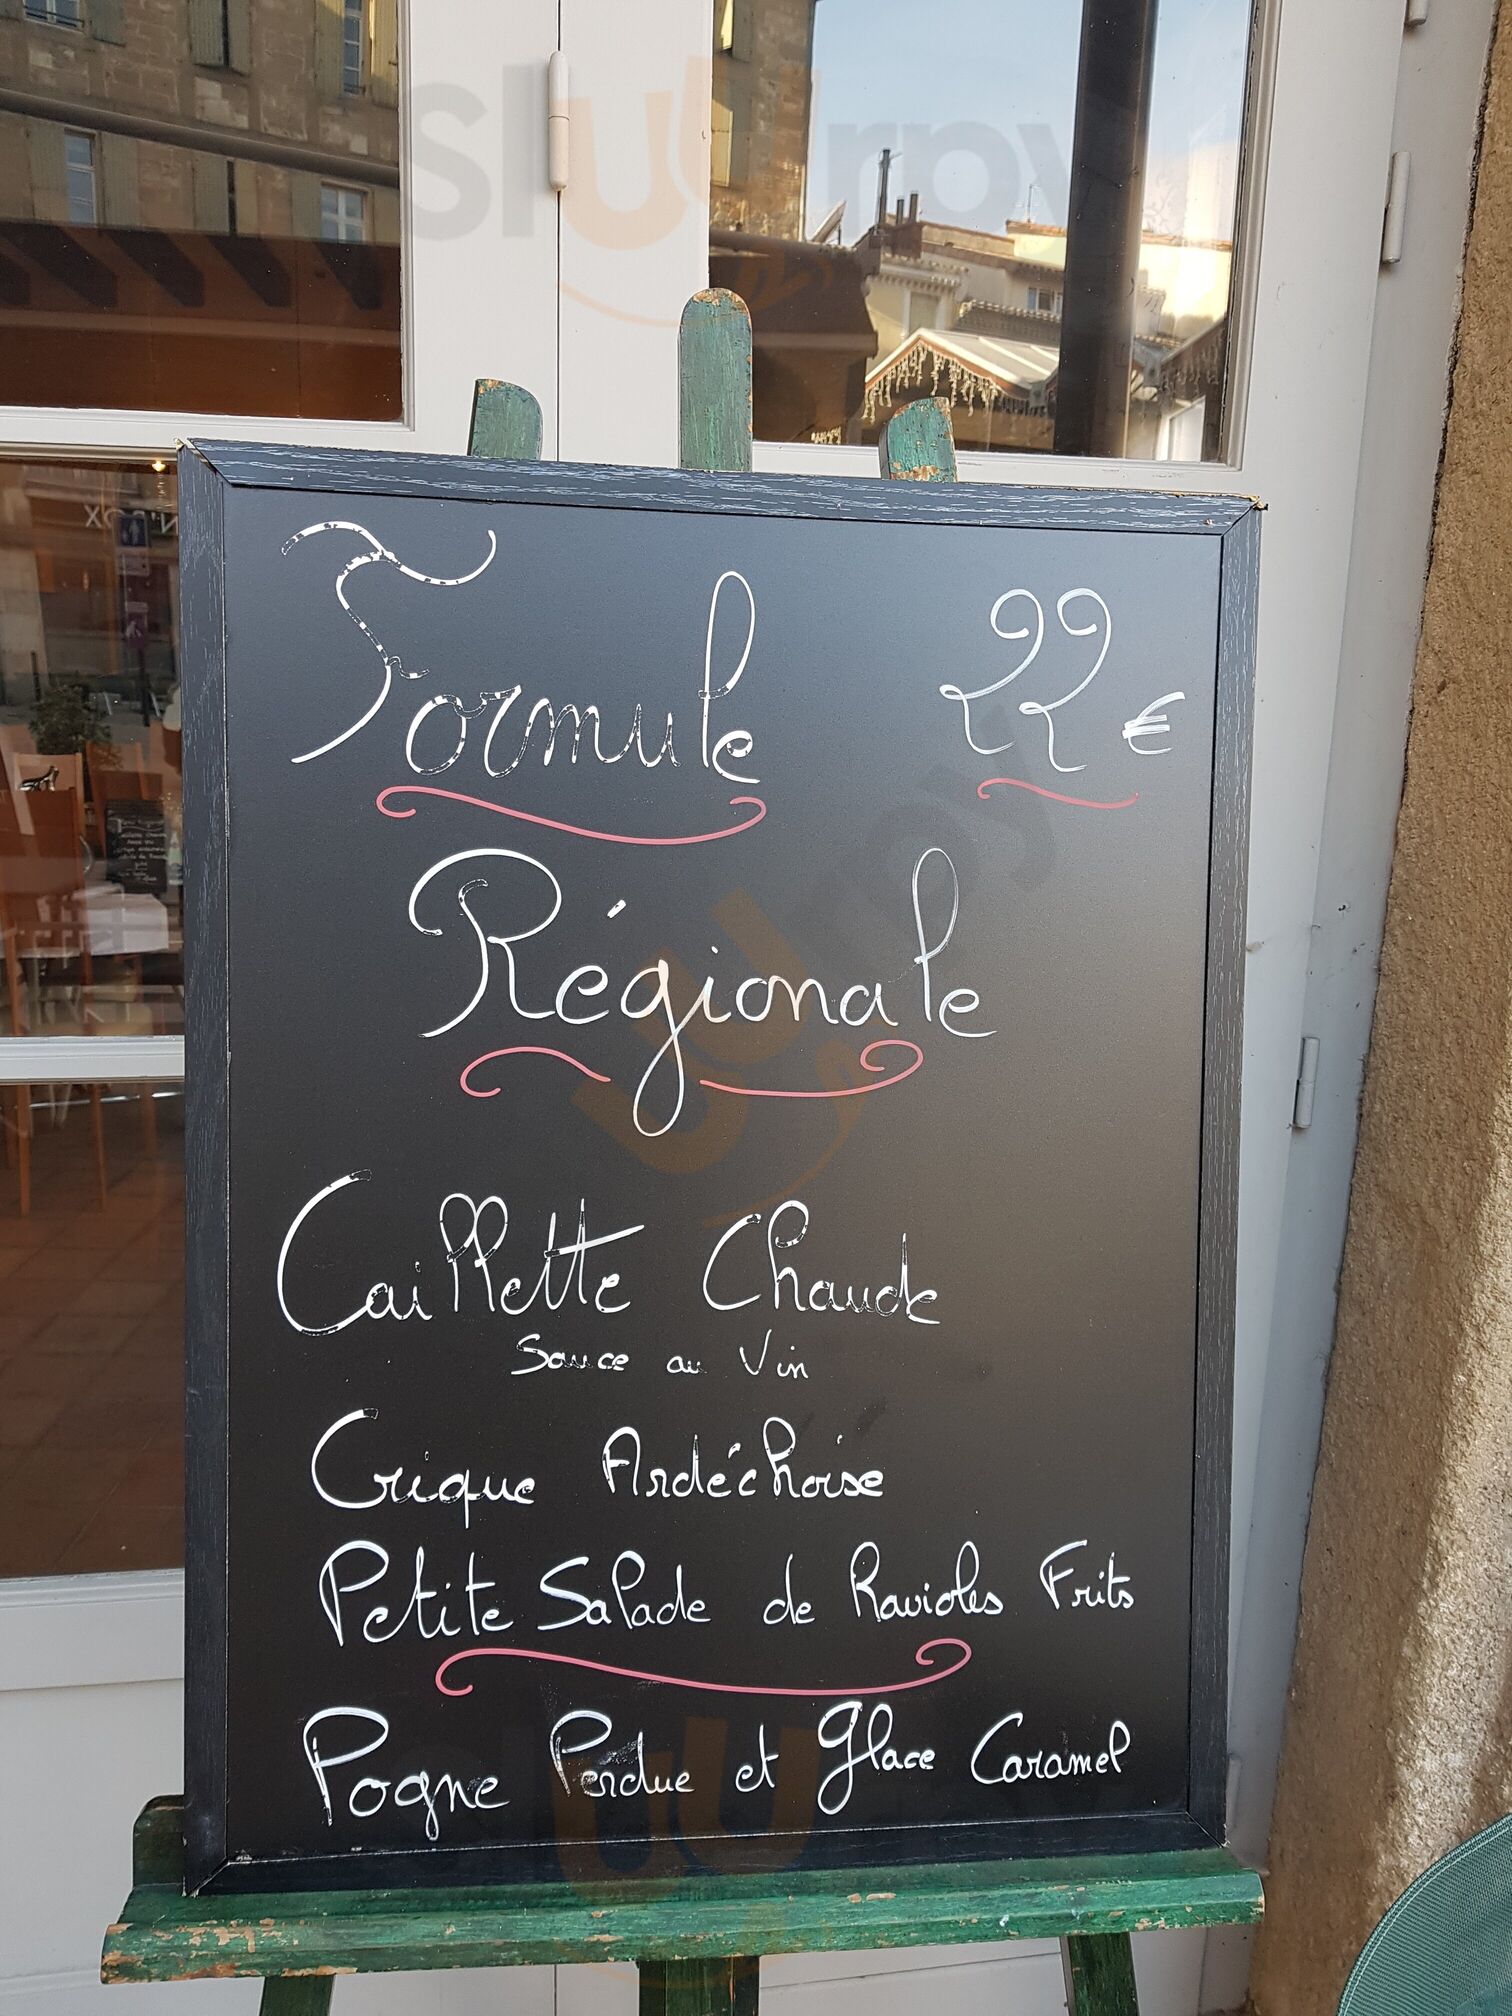 sluurpy
Formule 22 €
Régionale
Caillette Chaude
Sauce au Vin
Crique Ardéchoise
Petite Salade de Ravioles Frits
Pogne Perdue et Glace Caramel